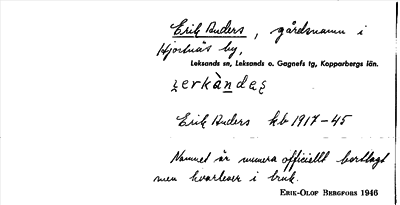 Erik Anders, gårdsnamn i
Hjortnäs by,
Leksands sn, Leksands o. Gagnefs tg, Kopparbergs län.
Erik Anders kb 1917-45
Namnet är numera officiellt borttaget
men kvarlever i bruk.
ERIK-OLOF BERGFORS 1946